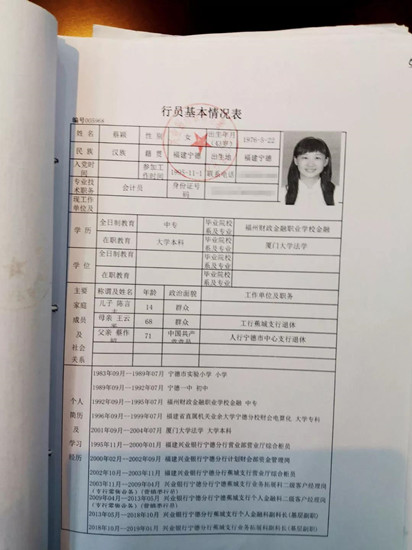 行员基本情况表
编号
姓 名 蔡颖 性 别 女 出生年月(43岁) 1976-5-22
民 族 汉族 籍 贯 福建宁德 出生地 福建宁德
入党时间 参加工作时间 1995-11-1 联系电话
专业技术职务 会计员 身份证号码
现工作单位及
学 历 全日制教育 中专 毕业院校系及专业 福州财政金融职业学校金融
在职教育 大学本科 毕业院校系及专业 厦门大学法学
学 位 全日制教育 毕业院校系及专业
在职教育 毕业院校系及专业
主要家庭成员及社会关系 称谓及姓名 年龄 政治面貌 工作单位及职务
儿子 陈言 14 群众
母亲 王云 68 群众 工行蕉城支行退休
父亲 蔡作 71 中国共产党党员 人行宁德市中心支行退休
个人简历及学习经历
1983年09月--1989年07月 宁德市实验小学 小学
1989年09月--1992年07月 宁德一中 初中
1992年09月--1995年07月 福州财政金融职业学校金融 中专
1996年09月--1999年07月 福建省直属机关业余大学宁德分校财会电算化 大学专科
2001年09月--2004年07月 厦门大学法学 大学本科
1995年11月--2000年01月 福建兴业银行宁德分行营业部营业厅综合柜员
2000年02月--2002年09月 福建兴业银行宁德分行计划财会部资金管理岗
2002年10月--2003年11月 福建兴业银行宁德分行蕉城支行营业厅综合柜员
2003年11月--2009年04月 兴业银行宁德分行蕉城支行业务拓展科二级客户经理岗
2009年04月--2013年05月 兴业银行宁德分行蕉城支行个人金融科二级客户经理岗
2013年05月--2018年10月 兴业银行宁德分行蕉城支行个人金融科副科长(基层副职)
2018年10月--2019年01月 兴业银行宁德分行蕉城支行业务拓展科副科长(基层副职)